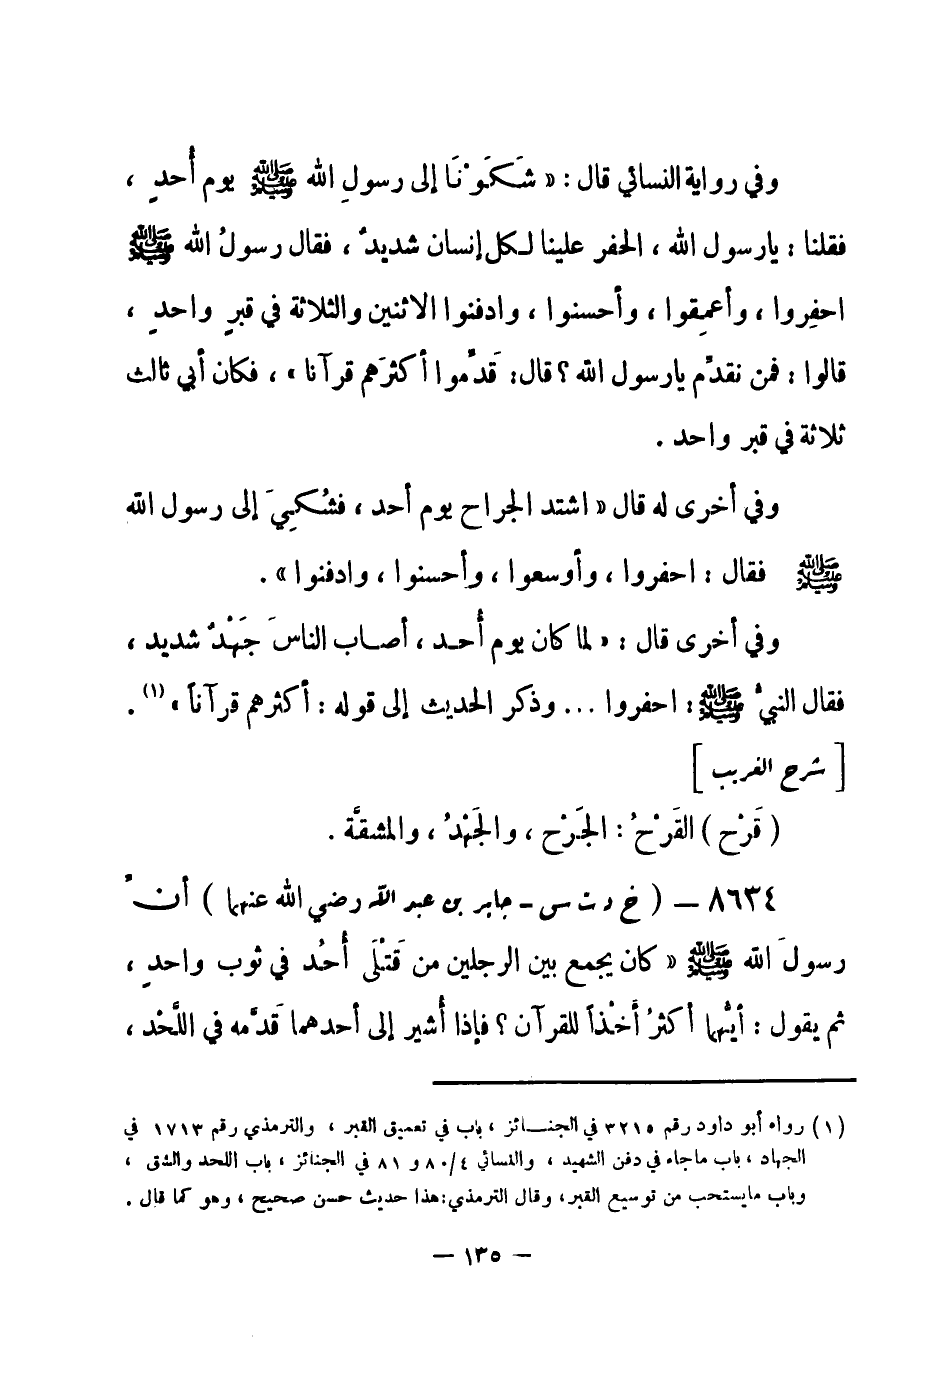 وفي رواية النسائي قال : « شَكَوْنَا إلى رسولِ الله ﷺ يوم أُحدٍ ،
فقلنا : يارسول الله ، الحفر علينا لكل إنسان شديدٌ ، فقال رسولُ الله ﷺ
احفِروا ، وأعمِقوا ، وأحسنوا ، وادفنوا الاثنين والثلاثة في قبرٍ واحدٍ ،
قالوا : فمن نقدِّم يارسول الله ؟ قال : قَدِّموا أكثرَهم قرآنا » ، فكان أبي ثالث
ثلاثة في قبر واحد .
وفي أخرى له قال « اشتد الجراح يوم أحد ، فشُكِيَ إلى رسول الله
ﷺ فقال : احفروا ، وأوسعوا ، وأحسنوا ، وادفنوا » .
وفي أخرى قال : « لما كان يوم أُحد ، أصاب الناسَ جَهْدٌ شديد ،
فقال النبيُّ ﷺ : احفروا ... وذكر الحديث إلى قوله : أكثرهم قرآناً » (١) .
[ شرح الغريب ]
( قَرْح ) القَرْحُ : الجَرْح ، والجَهْدُ ، والمشقَّة .
٨٦٣٤ — ( خ د ت س - جابر بن عبد الله رضي الله عنهما ) أنَّ
رسولَ الله ﷺ « كان يجمع بين الرجلين من قَتْلَى أُحُد في ثوب واحدٍ ،
ثم يقول : أيُّهما أكثرُ أَخْذاً للقرآن ؟ فإذا أُشير إلى أحدهما قدَّمه في اللَّحْد ،
(١) رواه أبو داود رقم ٣٢١٥ في الجنائز ، باب في تعميق القبر ، والترمذي رقم ١٧١٣ في
الجهاد ، باب ماجاء في دفن الشهيد ، والنسائي ٤/٨٠ و ٨١ في الجنائز ، باب اللحد والشق ،
وباب مايستحب من توسيع القبر ، وقال الترمذي : هذا حديث حسن صحيح ، وهو كما قال .
— ١٣٥ —